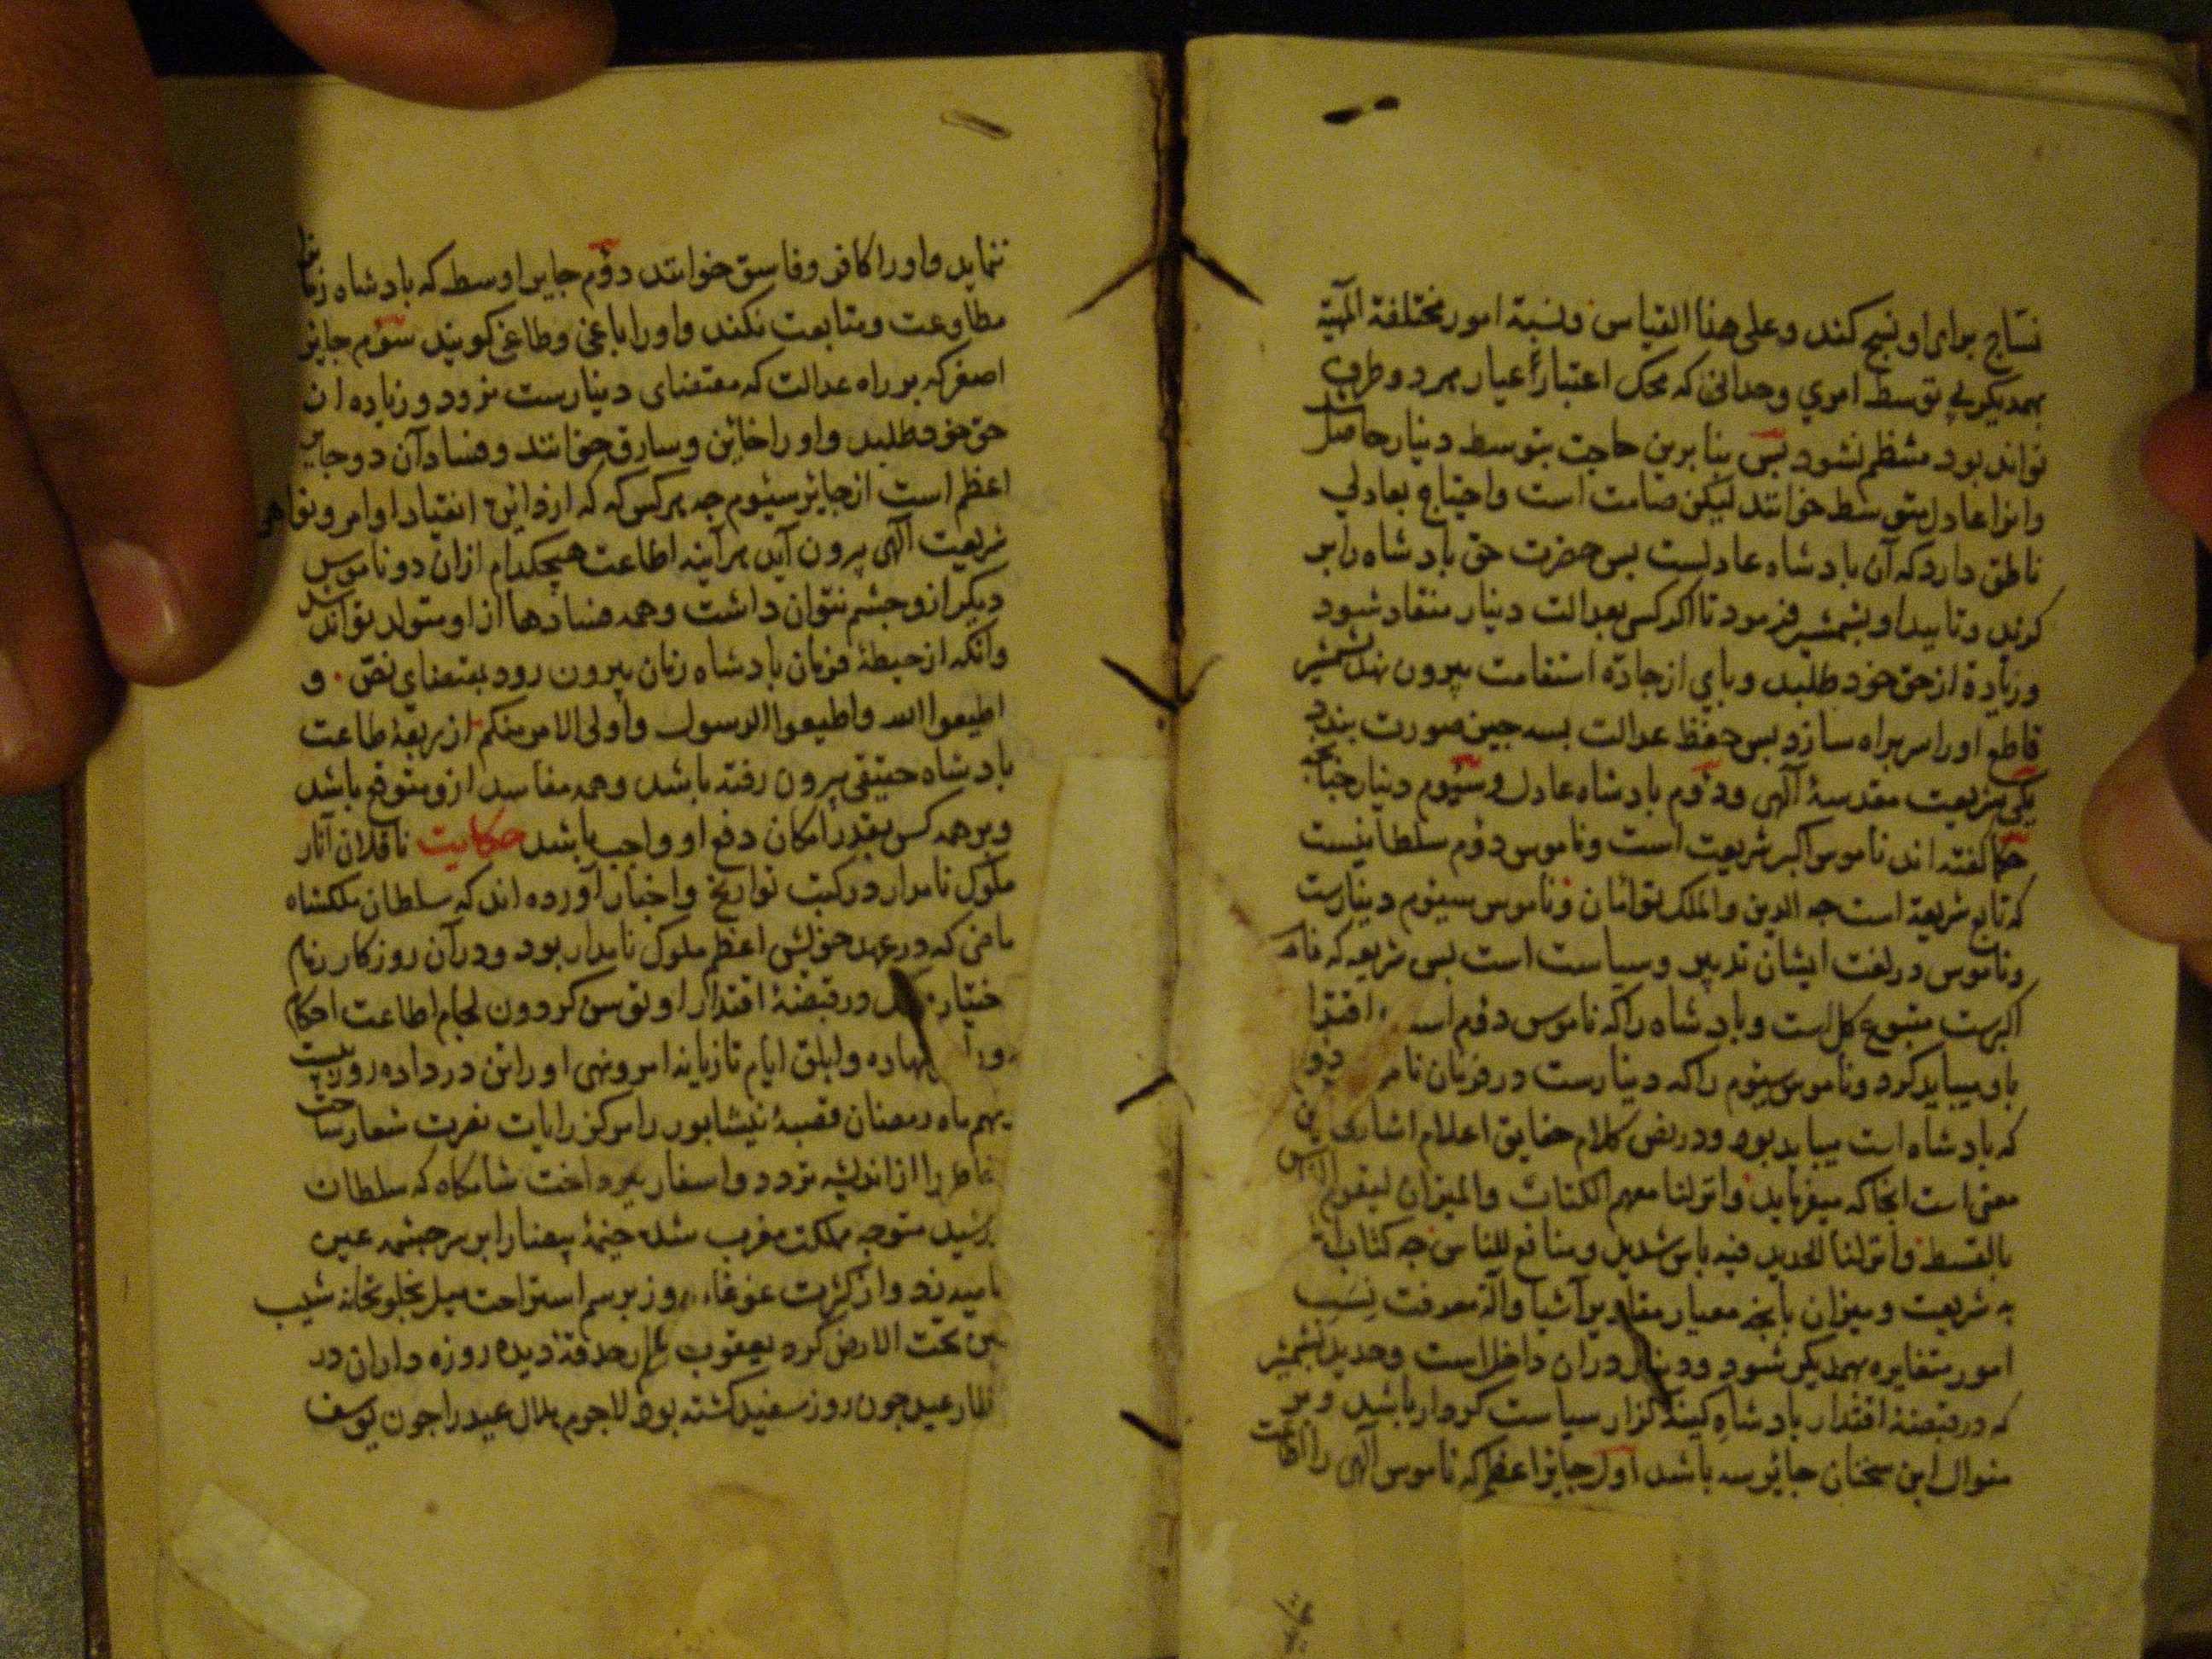 نساج برای او نسج کند و علی هذا القیاس ونسبة امور مختلفة المهیة
بهمدیکر بی توسط اموي وحدانی که محک اعتبار اعیار هر دو طرف
تواند بود منتظم نشود بس بنا برین حاجت بتوسط دینار حاصل شد
وانرا عادل متوسط خوانند لیکن صامت است واحتیاج بعادلي
ناطق دارد که آن بادشاه عادلست بس حضرت حق بادشاه را بر
کزید وتایید او بشمشیر فرمود تا اکر کسی بعدالت دینار منقاد نشود
وزیادة از حق خود طلبد وباي از جادّه استقامت بیرون نهد بشمشیر
قاطع اورا سر براه سازد بس حفظ عدالت بسه جیز صورت بندد
یکی شریعت مقدسهٔ آلهی ودوّم بادشاه عادل وسیّوم دینار جنانجه
حکما کفته اند ناموس اکبر شریعت است وناموس دوّم سلطانیست
که تابع شریعة است جه الدین والملک توامان وناموس سیوم دینارست
وناموس در لغت ایشان تدبیر وسیاست است بس شریعه که ناموس
اکبرست متبوع کل است وبادشاه را که ناموس دوّم است اقتدا
باو میباید کرد وناموس سیوم را که دینارست در فرمان ناموس دوم
که بادشاه است میباید بود ودر نص کلام حقایق اعلام اشارت باین
معنی است انجا که میفرماید وانزلنا معهم الکتاب والمیزان لیقوم الناس
بالقسط وانزلنا الحدید فیه باس شدید ومنافع للناس جه کتاب اشارة
به شریعت ومیزان بانجه معیار مقادیر آشیا وآلة معرفت نسب
امور متغایره بهمدیکر شود ودینار دران داخل است وحدید بشمشیر
که در قبضهٔ اقتدار بادشاه کینه کزار سیاست کردار باشد وبر
منوال این سخنان جائر سه باشد اول جایر اعظم که ناموس آلهی را اطاعت
ننماید واورا کافر وفاسق خوانند دوّم جایر اوسط که بادشاه زمانرا
مطاوعت ومتابعت نکند واورا باغی وطاغی کویند سوّم جایر
اصغر که بر راه عدالت که مقتضای دینارست نرود وزیاده از
حق خود طلبد واورا خائن وسارق خوانند وفساد آن دو جایر
اعظم است از جایر سیّوم جه هر کس که از دایرهٔ انقیاد اوامر ونواهی
شریعت آلهی بیرون آید هر آینه اطاعت هیجکدام ازان دو ناموس
دیکر ازو جشم نتوان داشت وهمه فسادها از او متولد تواند شد
وآنکه از حیطهٔ فرمان بادشاه زمان بیرون رود بمقتضاي نصّ و
اطیعوا الله واطیعوا الرسول واولی الامر منکم از ربقهٔ طاعت
بادشاه حقیقی بیرون رفته باشد وهمه مفاسد ازو متوقع باشد
وبر همه کس بقدر امکان دفع او واجب باشد حکایت ناقلان آثار
ملوک نامدار در کتب تواریخ واخبار آورده اند که سلطان ملکشاه
ماضی که در عهد خویش اعظم ملوک نامدار بود ودر آن روزکار زمام
ختیار در قبضهٔ اقتدار او توسن کردون لجام اطاعت احکام
نهاده وابلق ایام تازیانه امر ونهی اورا تن در داده روز بیست
نهم ماه رمضان قصبهٔ نیشابور را مرکز رایات نصرت شعار ساخت
خاطر را از اندیشه تردد واسفار ببرداخت شامکاه که سلطان
متوجه مملکت مغرب شد خیمهٔ بیضا را بر سر جشمه عین
نامیه زد واز کثرت غوغاء روز برسم استراحت میل بخلوتخانه شیب
تحت الارض کرد یعقوب حدقهٔ دیده روزه داران در
عید جون روز سفید کشته بود لاجرم هلال عید را جون یوسف